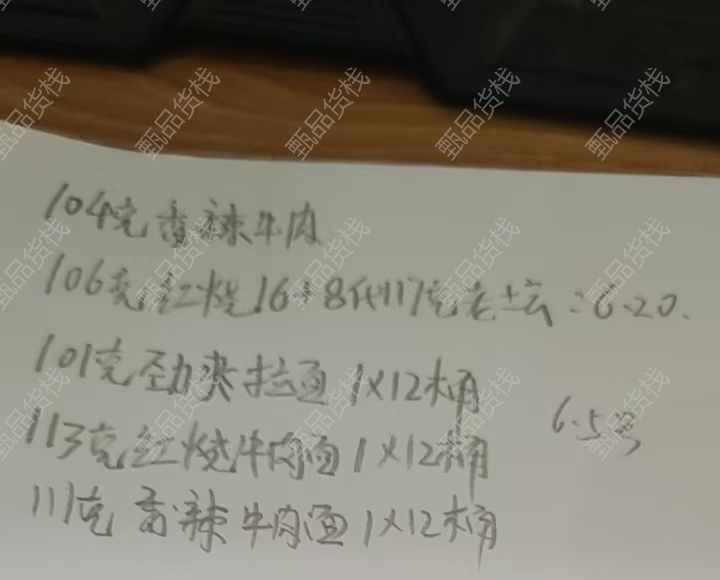 甄品货栈 甄品货栈 甄品货栈 甄品货栈 甄品货栈
104克香辣牛肉
106克红烧16+8代117克老坛:6.20.
101克劲爽拉面1×12桶
6.5号
113克红烧牛肉面1×12桶
111克香辣牛肉面1×12桶